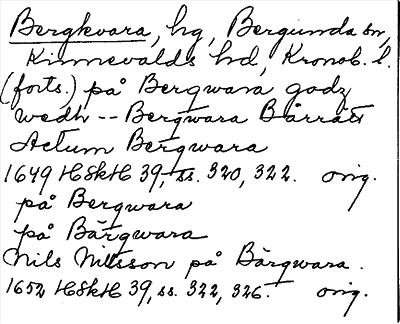 Bergkvara, hg, Bergunda sn,
Kinnevalds hd, Kronob. l.
(forts.) på Bergwara godz
wedh -- Bergwara Bårrátt
Actum Bergwara
1649 HSkH 39, ss. 320, 322. orig.
på Bergwara
på Bärgwara
Nils Nilsson på Bärgwara.
1652 HSkH 39, ss. 322, 326. orig.